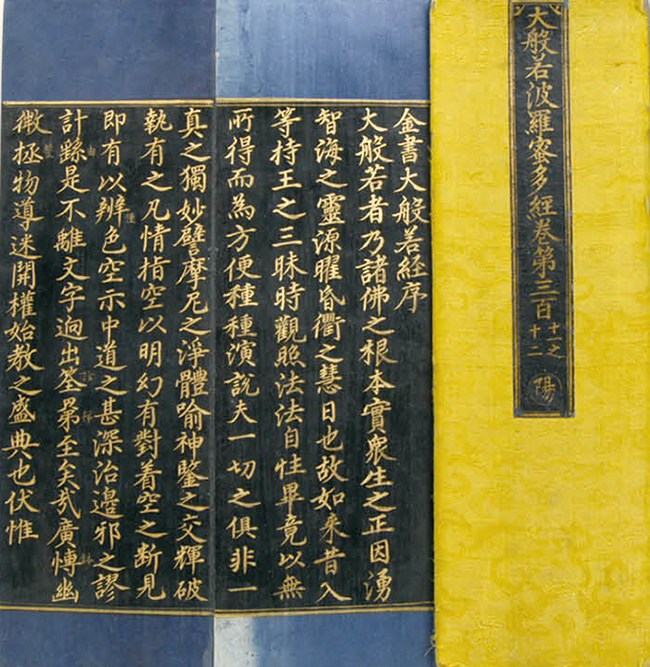 大般若波羅蜜多經卷第三百十一之十二
陽
金書大般若経序
大般若者乃諸佛之根本實衆生之正因湧
智海之靈源曜昏衢之慧日也故如来昔入
等持王之三昧時觀照法法自性畢竟以無
所得而為方便種種演說夫一切之俱非一
真之獨妙譬摩尼之淨體喻神鑒之交輝破
執有之凡情指空以明幻有對着空之断見
即有以辨色空示中道之甚深治邊邪之謬
計繇是不離文字迥出筌罤至矣哉廣慱幽
微拯物導迷開權始教之盛典也伏惟